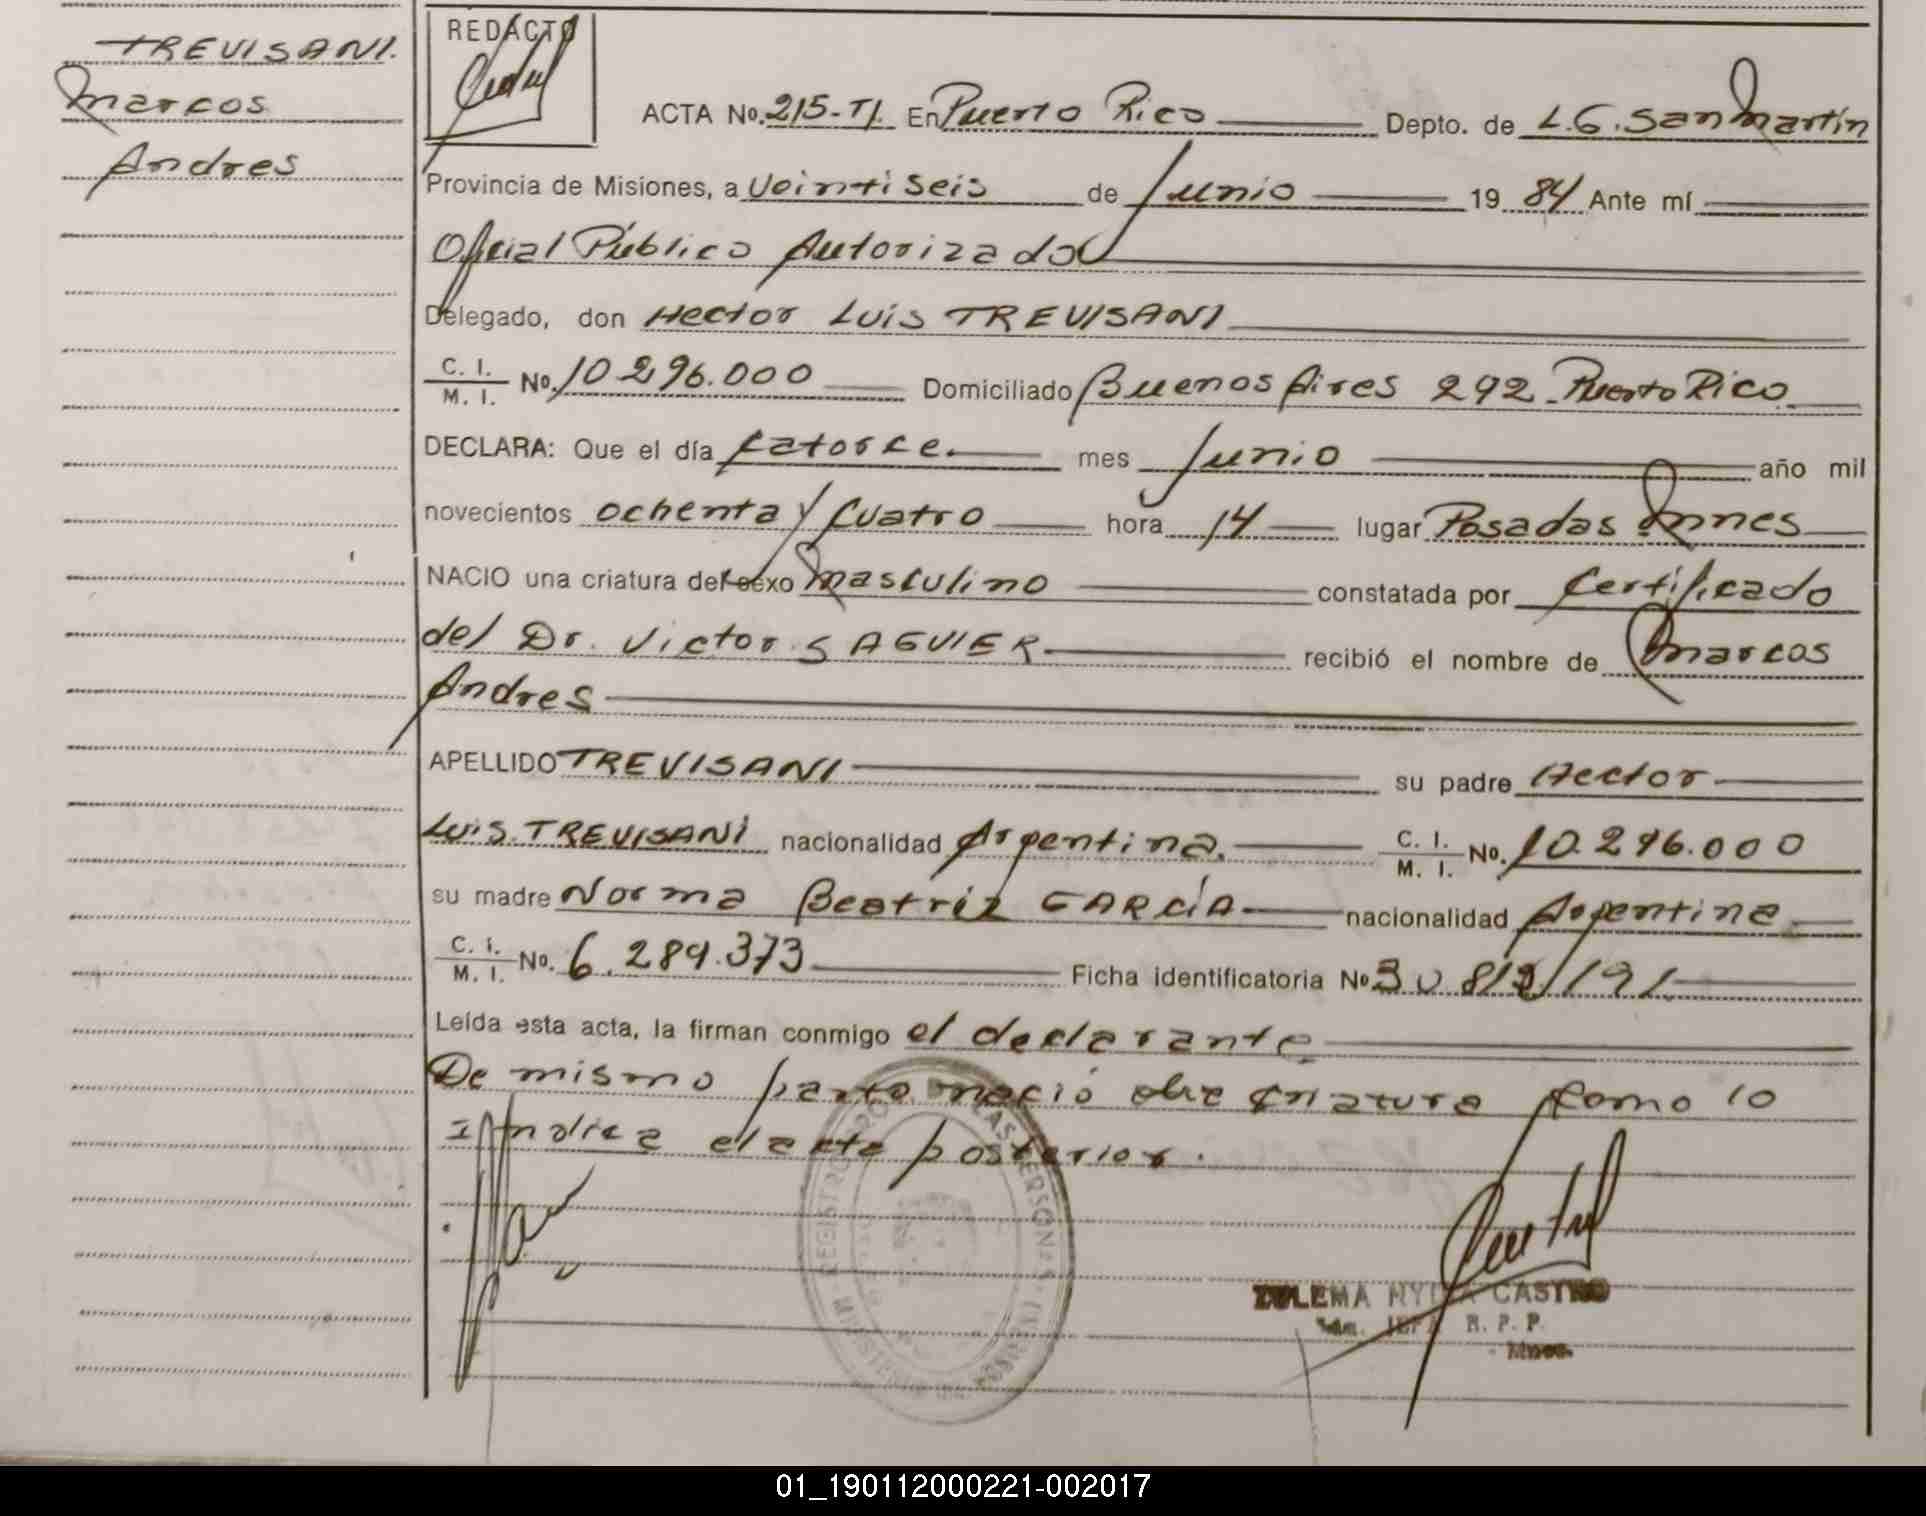 TREVISANI.
Marcos
Andres
REDACTO
ACTA No. 215-TI. En Puerto Rico Depto. de L.G. San Martín
Provincia de Misiones, a Veintiseis de Junio 1984 Ante mí
Oficial Público Autorizado
Delegado, don Hector Luis TREVISANI
C. I.
M. I. No. 10.296.000 Domiciliado Buenos Aires 292 - Puerto Rico
DECLARA: Que el día catorce. mes Junio año mil
novecientos ochenta y cuatro hora 14 lugar Posadas Mnes
NACIO una criatura del sexo Masculino constatada por Certificado
del Dr. Victor SAGUIER recibió el nombre de Marcos
Andres
APELLIDO TREVISANI su padre Hector
Luis. TREVISANI nacionalidad Argentina. C. I.
M. I. No. 10.296.000
su madre Norma Beatriz GARCÍA nacionalidad Argentina
C. I.
M. I. No. 6.289.373 Ficha identificatoria No
Leída esta acta, la firman conmigo el declarante
De mismo parto nació otra criatura como lo
Indica el acta posterior.
REGISTRO PRO DE LAS PERSONAS
ZULEMA CASTRO
R. P. P.
Mnes.
01_190112000221-002017